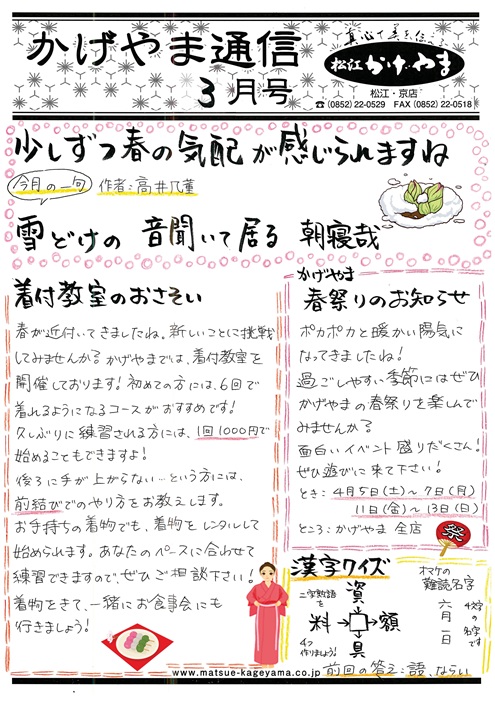 かげやま通信
3月号
真心で美を伝える
松江 かげやま
松江・京店
☎(0852)22-0529 FAX(0852)22-0518
少しずつ春の気配が感じられますね
今月の一句 作者:高井几董
雪どけの 音聞いて居る 朝寝哉
着付教室のおさそい
春が近付いてきましたね。新しいことに挑戦
してみませんか? かげやまでは、着付教室を
開催しております! 初めての方には、6回で
着れるようになるコースがおすすめです!
久しぶりに練習される方には、1回1000円で
始めることもできますよ!
後ろに手が上がらない…という方には、
前結びでのやり方をお教えします。
お手持ちの着物でも、着物をレンタルして
始められます。あなたのペースに合わせて
練習できますので、ぜひご相談下さい!
着物をきて、一緒にお食事会にも
行きましょう!
かげやま
春祭りのお知らせ
ポカポカと暖かい陽気に
なってきましたね!
過ごしやすい季節にはぜひ
かげやまの春祭りを楽しんで
みませんか?
面白いイベント盛りだくさん!
ぜひ遊びに来て下さい!
とき: 4月5日(土)~7日(月)
11日(金)~13日(日)
ところ:かげやま 全店
祭
漢字クイズ
二字熟語を
4つ
作りましょう!
資
料→□→額
具
オマケの
難読名字
六月一日
4文字の名字です
前回の答え:語、ならい
www.matsue-kageyama.co.jp